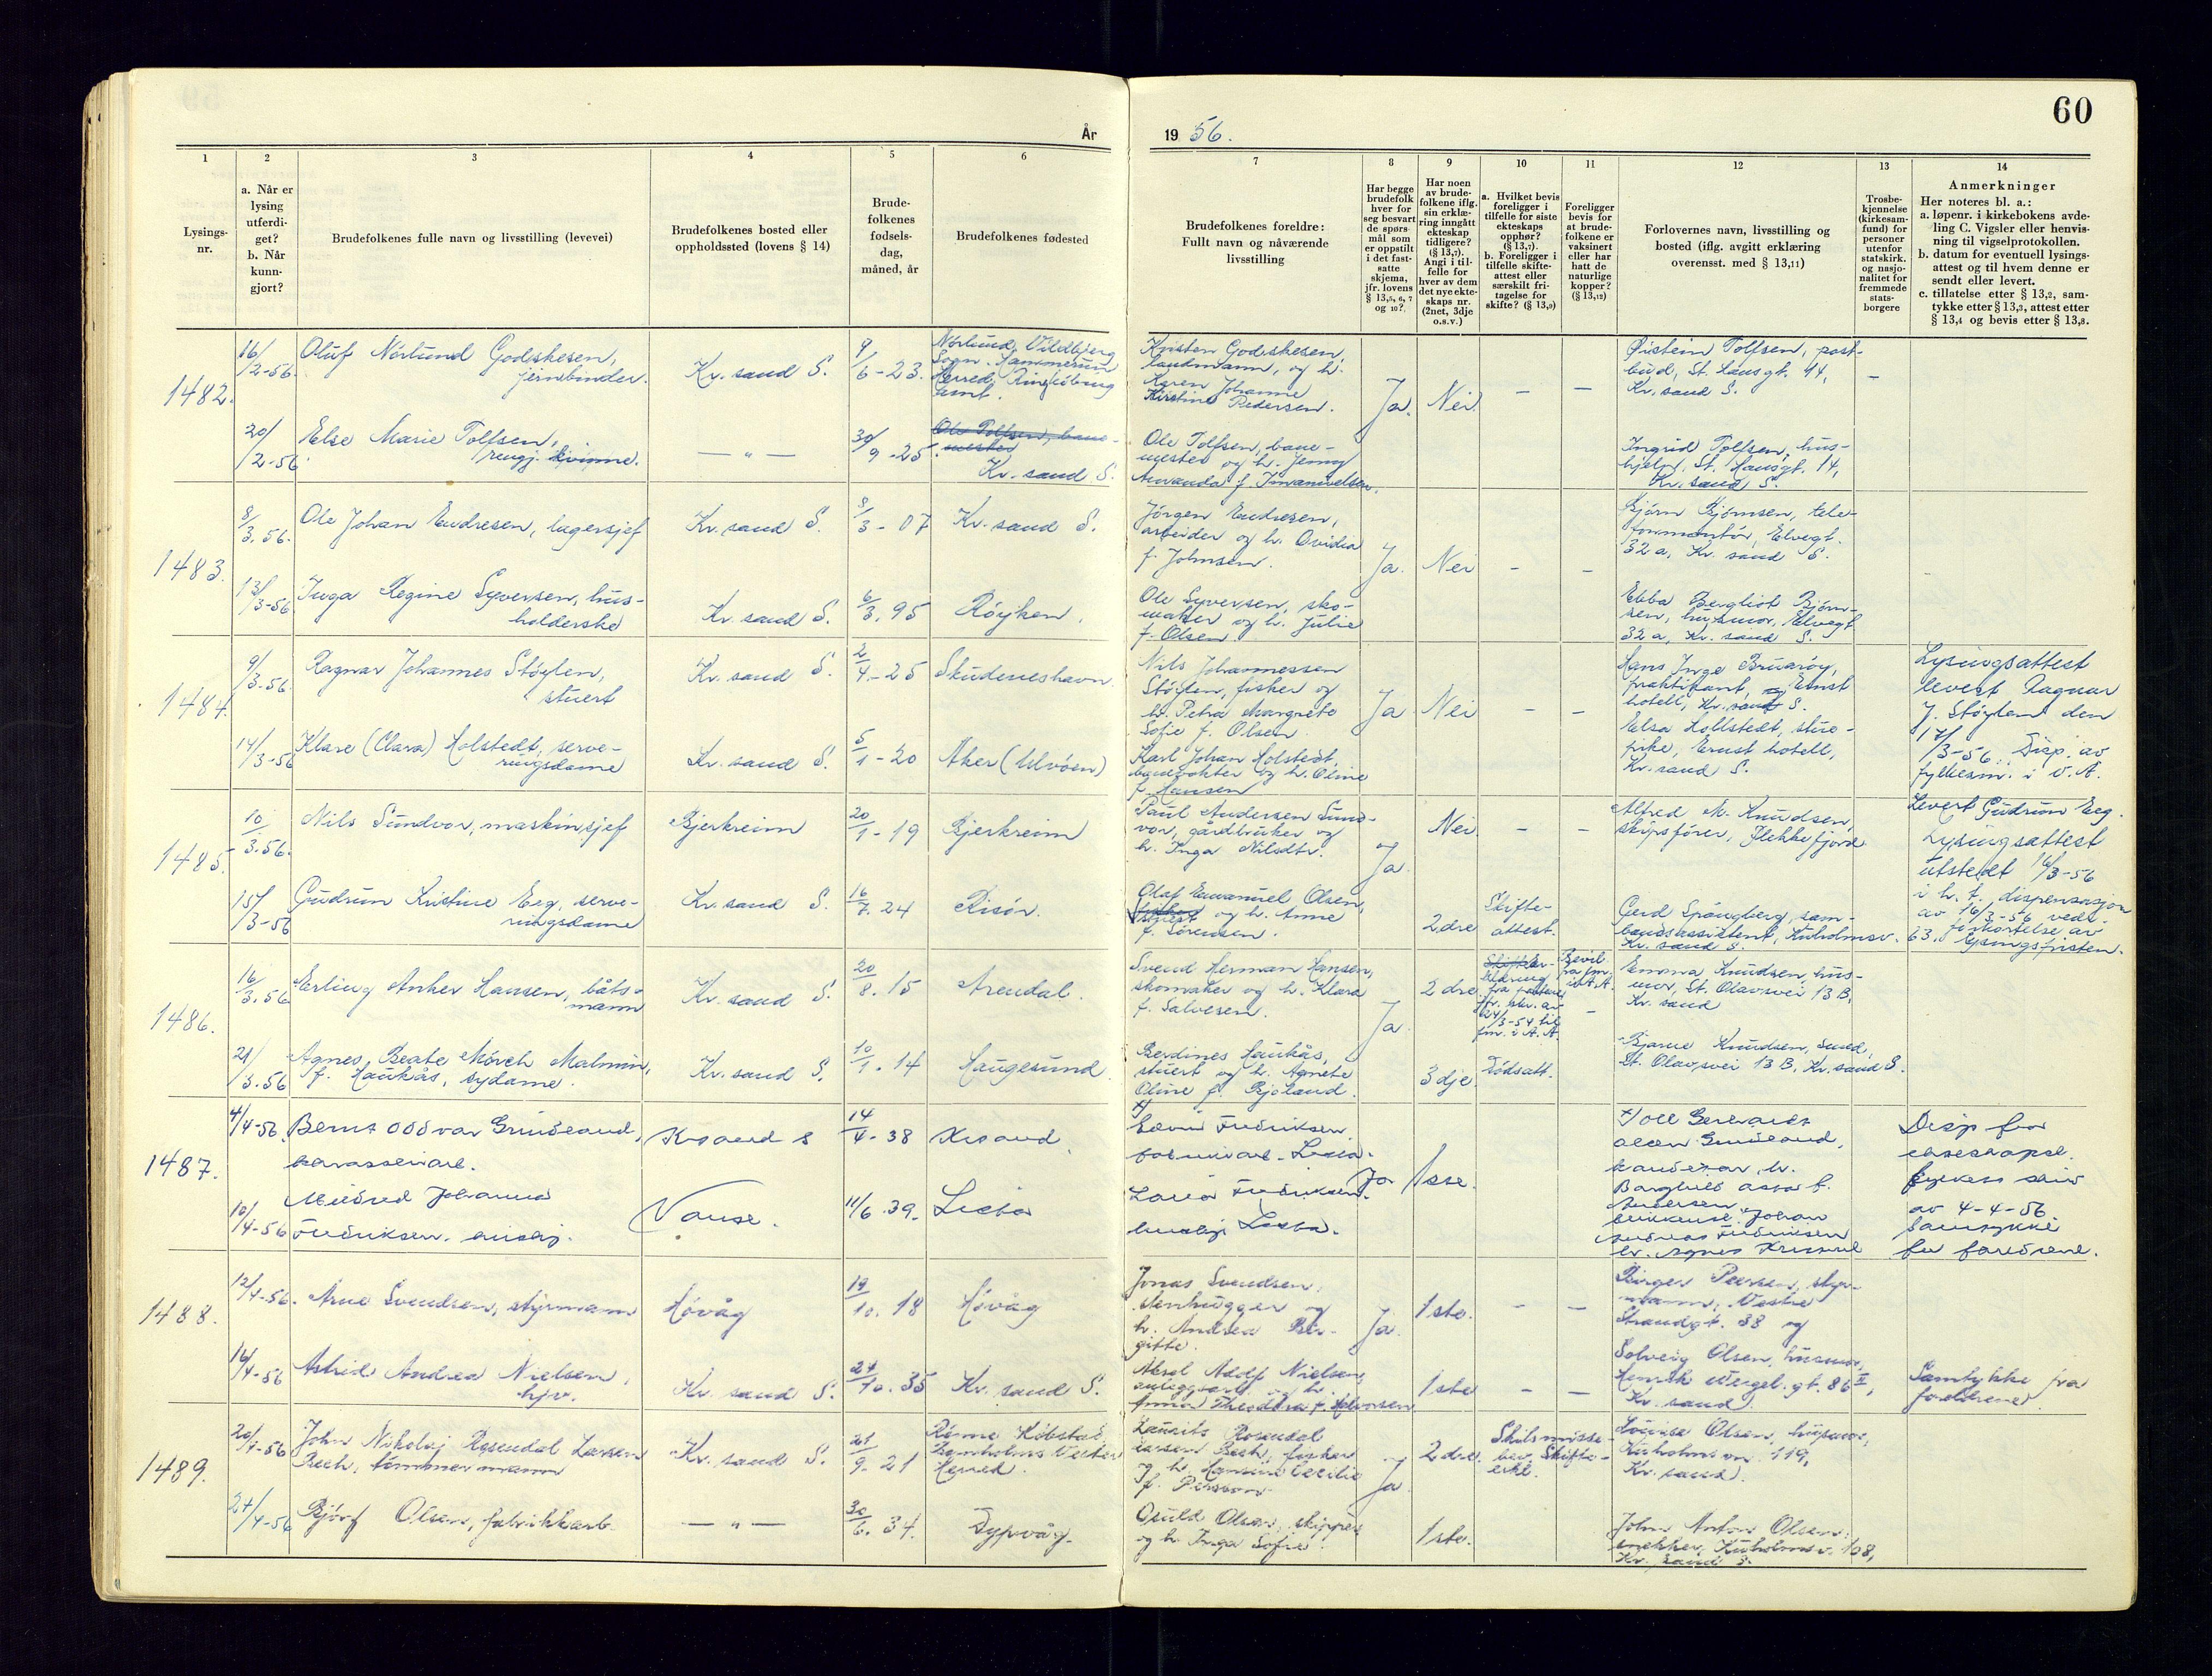 60
År
19 56.
1
2
3
4
5
6
7
8
9
10
11
12
13
14
Lysings-
nr.
a. Når er
lysing
utferdi-
get?
b. Når
kunn-
gjort?
Brudefolkenes fulle navn og livsstilling (levevei)
Brudefolkenes bosted eller
oppholdssted (lovens § 14)
Brude-
folkenes
fødsels-
dag,
måned, år
Brudefolkenes fødested
Brudefolkenes foreldre:
Fullt navn og nåværende
livsstilling
Har begge
brudefolk
hver for
seg besvart
de spørs-
mål som
er oppstilt
i det fast-
satte
skjema,
jfr. lovens
§ 13,5, 6, 7
og 10?
Har noen
av brude-
folkene iflg.
sin erklæ-
ring inngått
ekteskap
tidligere?
(§ 13,7).
Angi i til-
felle for
hver av dem
det nye ekte-
skaps nr.
(2net, 3dje
o.s.v.)
a. Hvilket bevis
foreligger i
tilfelle for siste
ekteskaps
opphør?
(§ 13,7).
b. Foreligger i
tilfelle skifte-
attest eller
særskilt fri-
tagelse for
skifte? (§ 13,9)
Foreligger
bevis for
at brude-
folkene er
vaksinert
eller har
hatt de
naturlige
kopper?
(§ 13,12)
Forlovernes navn, livsstilling og
bosted (iflg. avgitt erklæring
overensst. med § 13,11)
Trosbe-
kjennelse
(kirkesam-
fund) for
personer
utenfor
statskirk.
og nasjo-
nalitet for
fremmede
stats-
borgere
Anmerkninger
Her noteres bl. a.:
a. løpenr. i kirkebokens avde-
ling C. Vigsler eller henvis-
ning til vigselprotokollen.
b. datum for eventuell lysings-
attest og til hvem denne er
sendt eller levert.
c. tillatelse etter § 13,2, sam-
tykke etter § 13,3, attest etter
§ 13,4 og bevis etter § 13,8.
1482.
16/2-56.
Oluf Nörlund Godskesen,
jernbinder.
Kr. sand S.
9/6-23.
Nørlund, Vildbjerg
Sogn. Hammerum
Herred, Ringköbing
Amt.
Kristen Godskesen,
landmann, og h.
Karen Johanne
Kirstine Pedersen.
Ja.
Nei.
–
–
Øistein Tolfsen, post-
bud, St. Hansgt. 14,
Kr. sand S.
–
20/2-56
Else Marie Tolfsen,
rengj. kvinne.
— " —
30/9-25.
Ole Tolfsen, bane-
mester
Kr. sand S.
Ole Tolfsen, bane-
mester og h. Jenny
Amanda f. Immanuelsen.
Ingrid Tolfsen, hus-
hjelp, St. Hansgt. 14,
Kr. sand S.
1483.
8/3.56.
Ole Johan Endresen, lagersjef
Kr. sand S.
8/3-07
Kr. sand S.
Jörgen Endresen,
arbeider og h. Ovidia
f. Johnsen.
Ja.
Nei
–
–
Bjørn Bjørnsen, tele-
fonmontör, Elvegt.
32a, Kr. sand S.
13/3-56
Inga Regine Syversen, hus-
holderske
Kr. sand S.
6/3.95
Röyken.
Ole Syversen, sko-
maker og h. Julie
f. Olsen
Ebba Bergliot Bjørn-
sen, husmor, Elvegt.
32a, Kr. sand S.
1484.
9/3-56.
Ragnar Johannes Stöylen,
stuert
Kr. sand S.
2/4-25
Skudeneshavn.
Nils Johannessen
Stöylen, fisker og
h. Petra Margrete
Sofie f. Olsen.
Ja
Nei
–
–
Hans Inge Bruaröy,
praktikant, Ernst
hotell, Kr. sand S.
Lysingsattest
levert Ragnar
J. Stöylen den
17/3-56. Disp. av
fylkesm. i V.A.
14/3-56
Klare (Clara) Holstedt, serve-
ringsdame
Kr. sand S.
5/1-20
Aker (Ulvöen)
Karl Johan Holstedt,
banevokter og h. Oline
f. Hansen
Elsa Hollstedt, stue-
pike, Ernst hotell,
Kr. sand S.
1485.
10/3.56.
Nils Sundvor, maskinsjef
Bjerkreim
20/1-19
Bjerkreim
Paul Andersen Sund-
vor, gårdbruker og
h. Inga Nilsdtr.
Ja
Nei
–
–
Alfred M. Knudsen,
skipsförer, Flekkefjord
Levert Gudrun Eeg.
Lysingsattest
utstedt 16/3-56
i h. t. dispensasjon
av 16/3-56 vedr.
forkortelse av
lysingsfristen.
15/3-56
Gudrun Kristine Eeg, serve-
ringsdame
Kr. sand S.
16/7.24
Risör.
Olaf Emanuel Olsen,
og h. Anne
f. Sörensen.
2dre
Skifte-
attest.
Gerd Spångberg, sam-
bandsassistent, Kuholmsv.
63. Kr. sand S.
1486.
16/3.56
Erling Anker Hansen, båts-
mann
Kr. sand S.
20/8.15
Arendal.
Svend Herman Hansen,
skomaker og h. Klara
f. Salvesen.
Ja
2dre
24/3-54 til
fm. i A. A.
–
Emma Knudsen, hus-
mor, St. Olavsvei 13B,
Kr. sand
21/3.56
Agnes Beate Mörch Malmin,
f. Haukås, sydame.
Kr. sand S.
10/1.14
Haugesund
Berdines Haukås,
stuert og h. Agnete
Oline f. Bjoland.
3dje
Dödsatt.
Bjarne Knudsen, smed,
St. Olavsvei 13B, Kr. sand S.
1487.
4/4-56
Bernt Oddvar
Krsand S
14/4-38
Krsand.
Ja
1ste.
Disp fra
av 4-4-56.
samtykke
fra foreldrene.
10/4-56
Mildred Johanne
Fredriksen.
Vanse.
11/6.39.
Lista
1488.
12/4-56.
Arne Svendsen, styrmann
Hövåg
19/10.18
Hövåg
Jonas Svendsen,
stenhugger og
h. Andrea Bir-
gitte.
Ja.
1ste.
–
–
Birger Pearsen, styr-
mann, Vestre
Strandgt. 38 og
16/4-56
Astrid Andrea Nielsen,
hjv.
Kr. sand S.
24/10.35
Kr. sand S.
Aksel Adolf Nielsen,
anleggsarb. og h.
Theodora f. Halvorsen
1ste
–
–
Solveig Olsen, husmor,
Henrik Wergel. gt. 86 II,
Kr. sand.
Samtykke fra
foreldrene.
1489.
20/4-56
John Nikolaj Rosendal Larsen
Bech, tömmermann
Kr. sand S.
21/9-21
Rönne Köbstad,
Bornholms Vester
Herred.
Laurits Rosendal
Larsen Bech, fisker
og h. Hansine Cecilie
f. Persson.
Ja
2dre.
Skilsmisse-
bev. Skifte-
erkl.
Lovise Olsen, husmor,
Kuholmsvn. 119,
Kr. sand.
24/4-56
Bjørg Olsen, fabrikkarb.
— " —
30/6.34.
Dypvåg.
Osuld Olsen, skipper
og h. Inga Sofie.
1ste.
John Anton Olsen,
snekker, Kuholmsv. 108,
Kr. sand S.